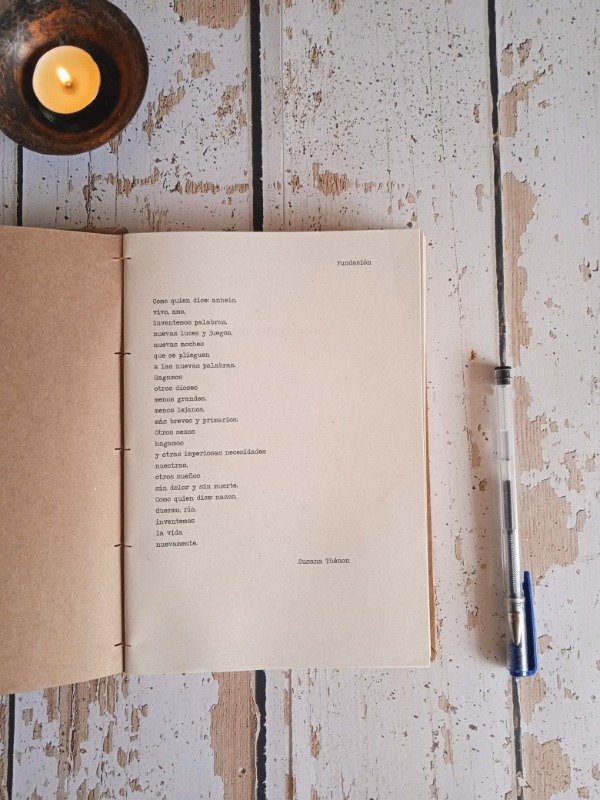 Fundación
Como quien dice: anhelo,
vivo, amo,
inventemos palabras,
nuevas luces y juegos,
nuevas noches
que se plieguen
a las nuevas palabras.
Hagamos
otros dioses
menos grandes,
menos lejanos,
más breves y primarios.
Otros sexos
hagamos
y otras imperiosas necesidades
nuestras,
otros sueños
sin dolor y sin muerte.
Como quien dice: nazco,
duermo, río,
inventemos
la vida
nuevamente.
Susana Thénon